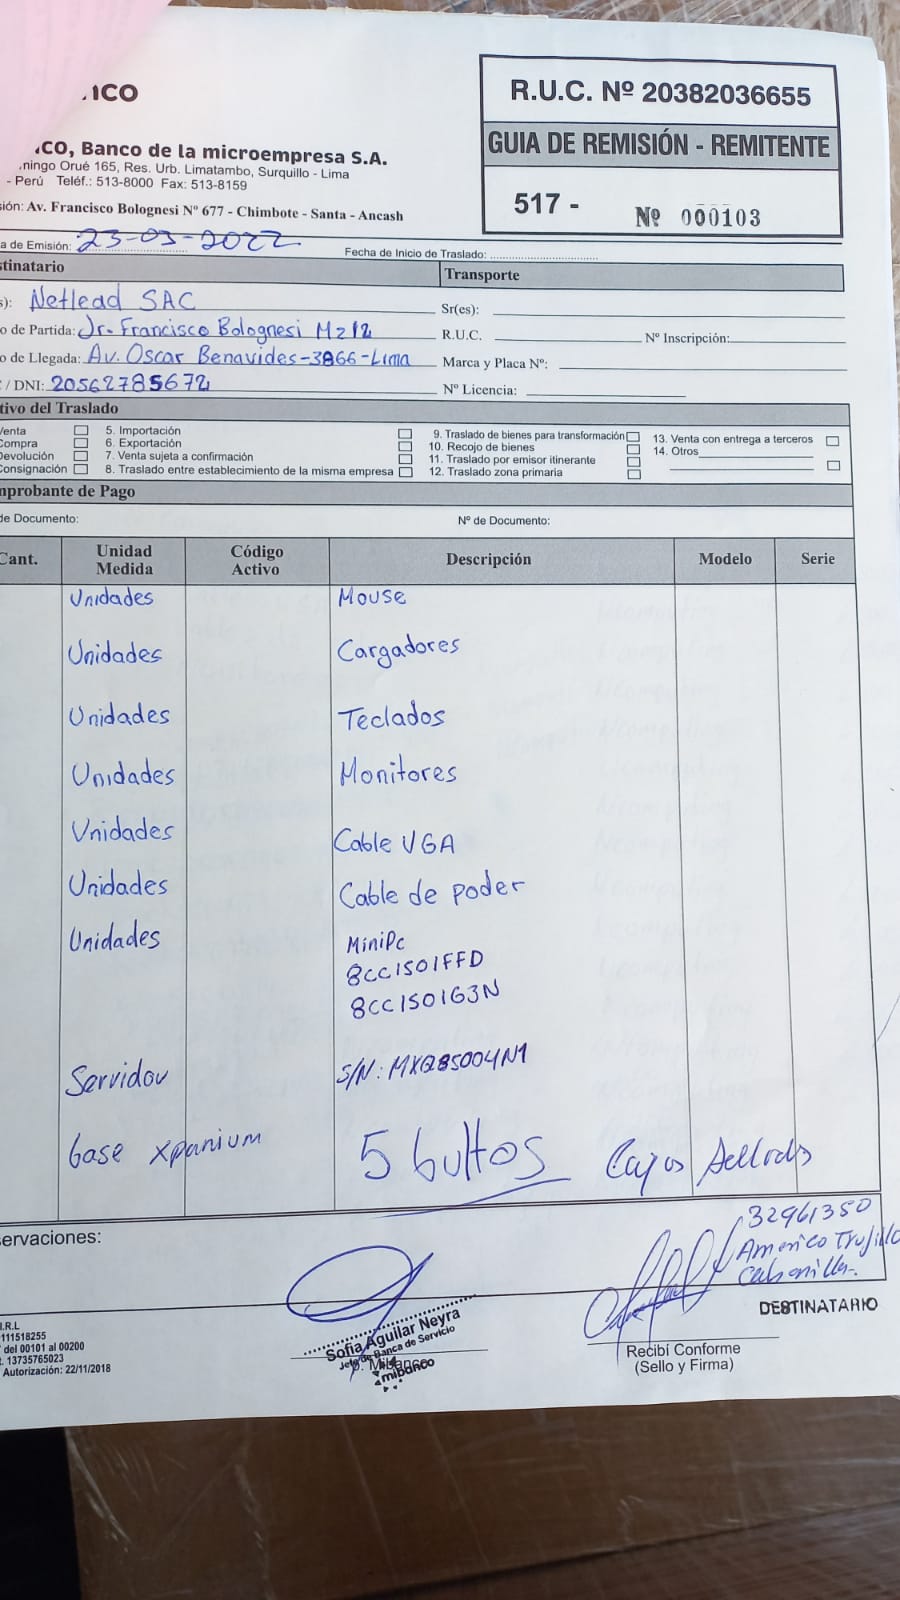 nco
CO, Banco de la microempresa S.A.
ningo Orué 165, Res. Urb. Limatambo, Surquillo - Lima
- Perú Teléf.: 513-8000 Fax: 513-8159
sión: Av. Francisco Bolognesi Nº 677 - Chimbote - Santa - Ancash
R.U.C. Nº 20382036655
GUIA DE REMISIÓN - REMITENTE
517 - Nº 000103
a de Emisión: 23-03-2022 Fecha de Inicio de Traslado:
stinatario Transporte
s): Netlead SAC Sr(es):
o de Partida: Jr. Francisco Bolognesi Mz12 R.U.C. Nº Inscripción:
o de Llegada: Av. Oscar Benavides-3866-Lima Marca y Placa Nº:
/ DNI: 20562785672 Nº Licencia:
tivo del Traslado
Venta 5. Importación 9. Traslado de bienes para transformación 13. Venta con entrega a terceros
Compra 6. Exportación 10. Recojo de bienes 14. Otros
Devolución 7. Venta sujeta a confirmación 11. Traslado por emisor itinerante
Consignación 8. Traslado entre establecimiento de la misma empresa 12. Traslado zona primaria
mprobante de Pago
de Documento: Nº de Documento:
Cant. Unidad Medida Código Activo Descripción Modelo Serie
Unidades Mouse
Unidades Cargadores
Unidades Teclados
Unidades Monitores
Unidades Cable VGA
Unidades Cable de poder
Unidades MiniPc
8CC1501FFD
8CC1501G3N
Servidor S/N: MXQ85004N1
base xpanium 5 bultos Cajas Selladas
servaciones:
32961350
Americo Trujillo
Cabanillas.
DESTINATARIO
Sofia Aguilar Neyra
Jefe de Banca de Servicio
Mibanco
mibanco
Recibí Conforme
(Sello y Firma)
I.R.L
111518255
del 00101 al 00200
. 13735765023
Autorización: 22/11/2018